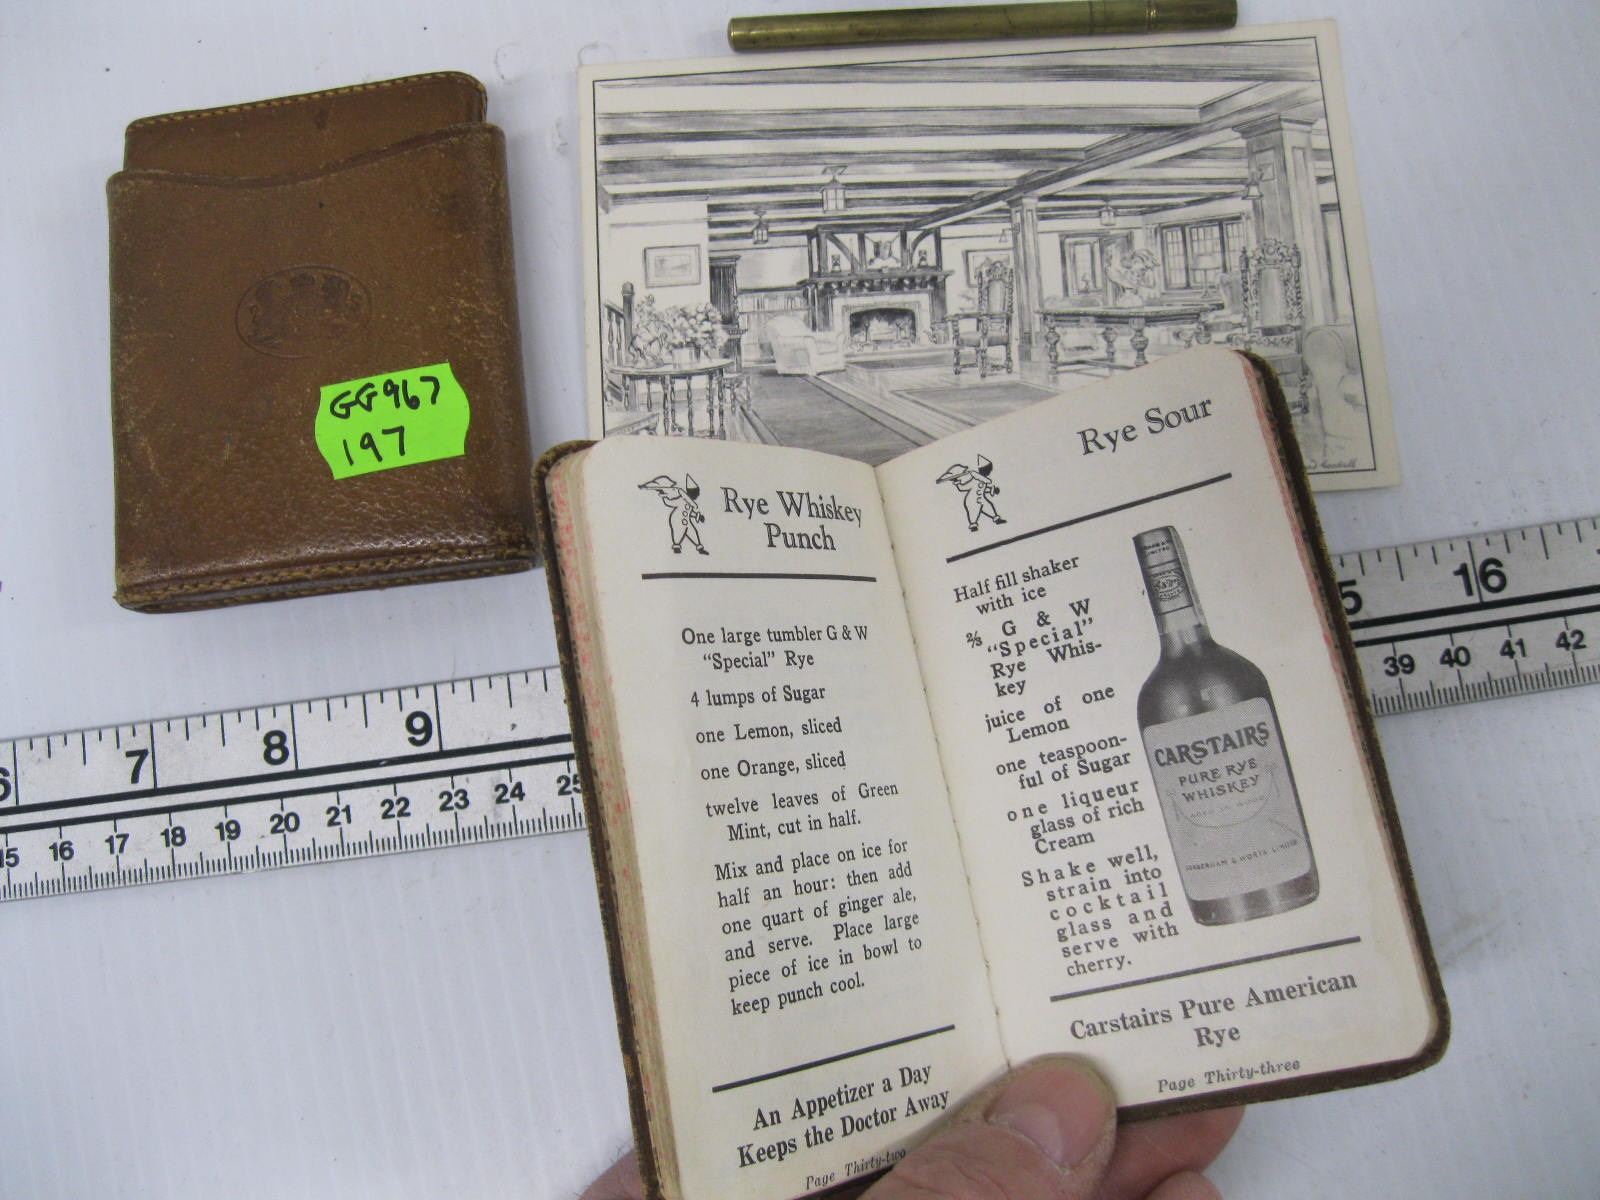 GG967
197
Rye Whiskey
Punch
One large tumbler G & W
"Special" Rye
4 lumps of Sugar
one Lemon, sliced
one Orange, sliced
twelve leaves of Green
Mint, cut in half.
Mix and place on ice for
half an hour: then add
one quart of ginger ale,
and serve. Place large
piece of ice in bowl to
keep punch cool.
An Appetizer a Day
Keeps the Doctor Away
Page Thirty-two
Rye Sour
Half fill shaker
with ice
2/3 G & W
"Special"
Rye Whis-
key
juice of one
Lemon
one teaspoon-
ful of Sugar
one liqueur
glass of rich
Cream
Shake well,
strain into
cocktail
glass and
serve with
cherry.
CARSTAIRS
PURE RYE
WHISKEY
Carstairs Pure American
Rye
Page Thirty-three
6 7 8 9
15 16 17 18 19 20 21 22 23 24 25
5 16
39 40 41 42